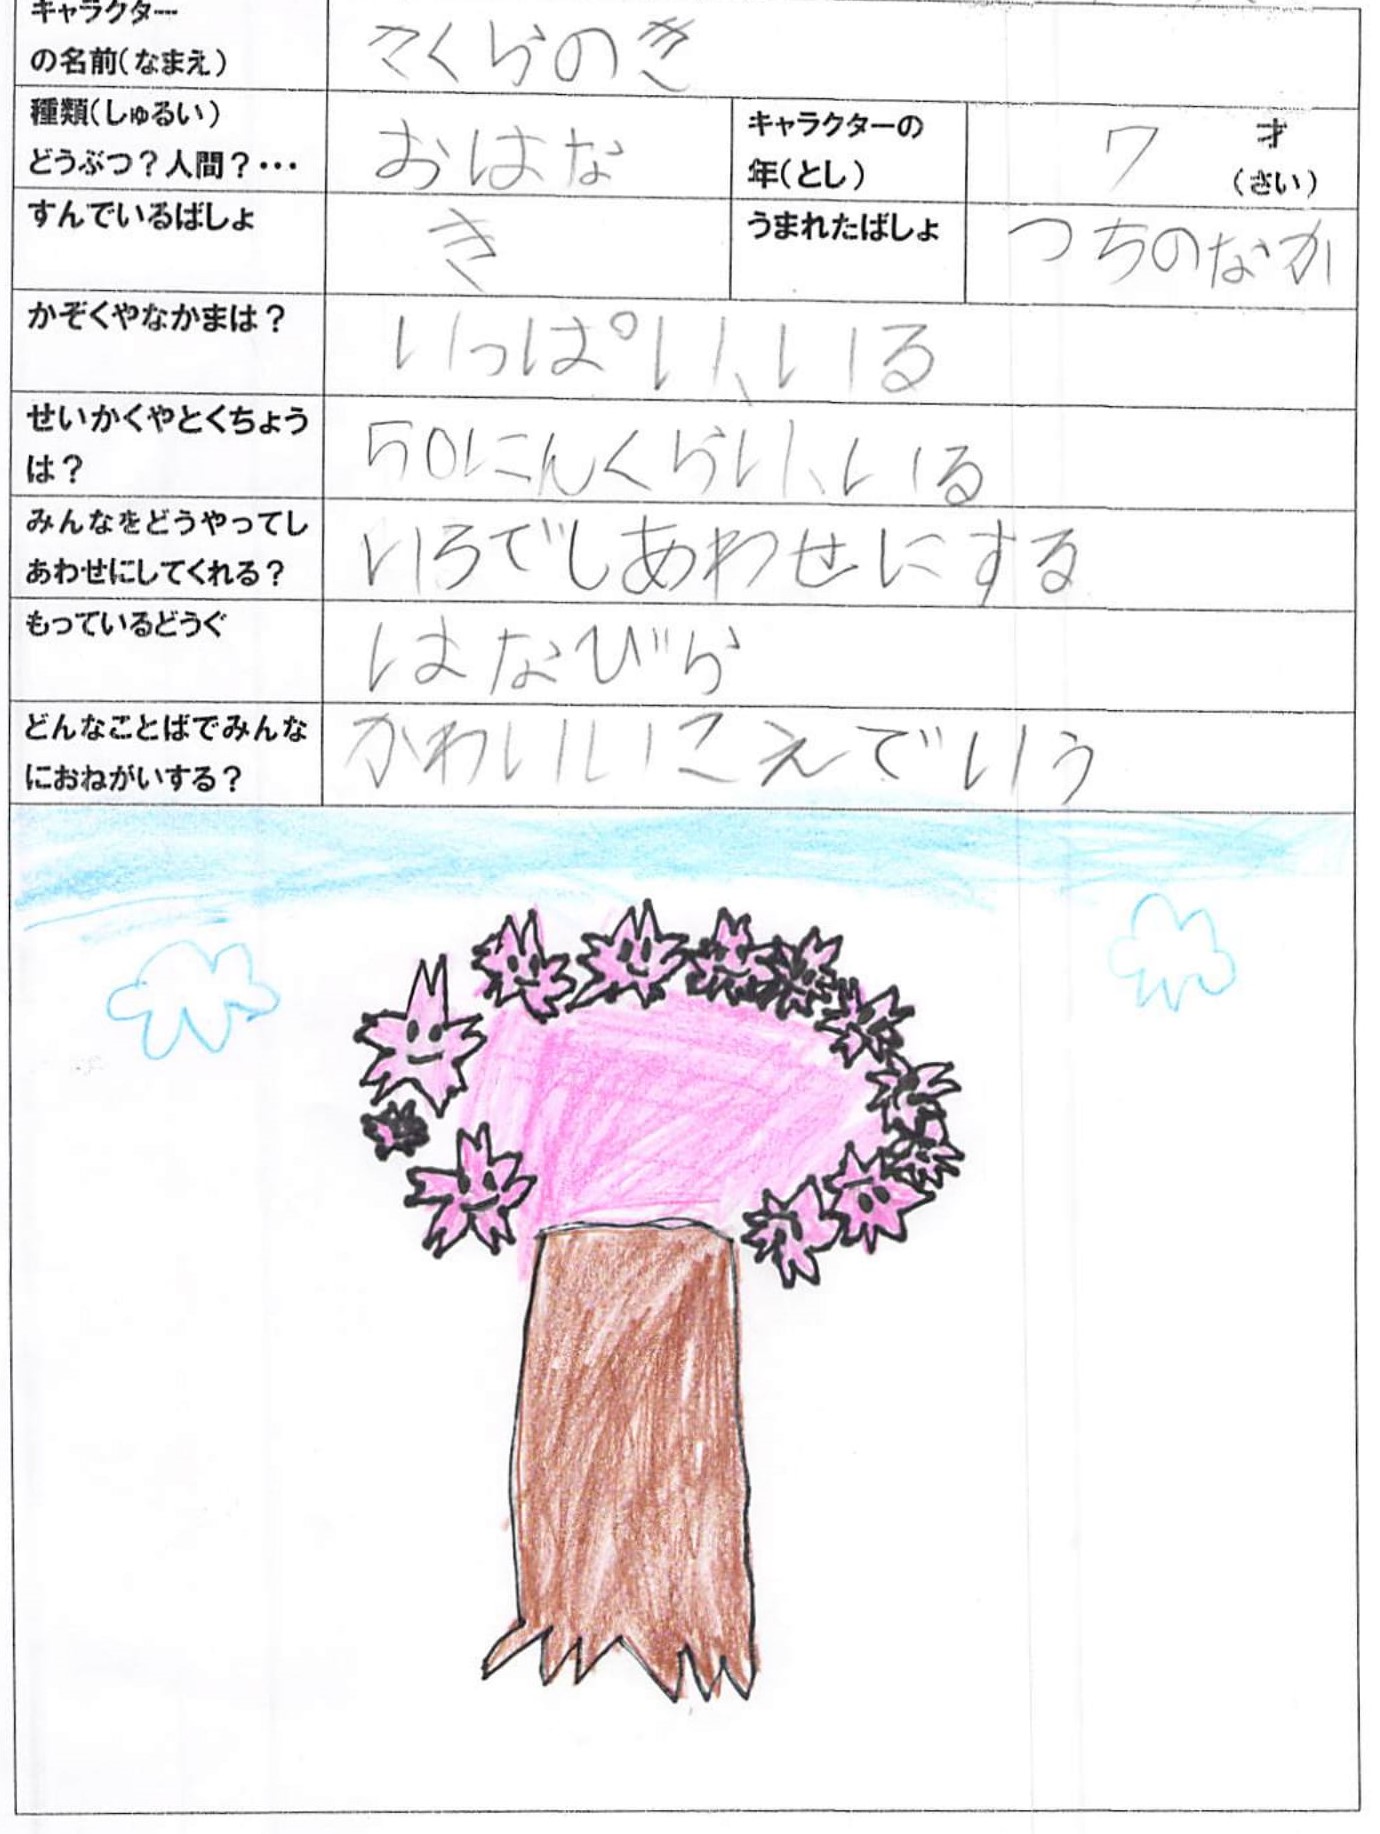 キャラクター
の名前(なまえ)
さくらのき
種類(しゅるい)
どうぶつ?人間?・・・
おはな
キャラクターの
年(とし)
7
才
(さい)
すんでいるばしょ
き
うまれたばしょ
つちのなか
かぞくやなかまは?
いっぱい、いる
せいかくやとくちょう
は?
50にんくらい、いる
みんなをどうやってし
あわせにしてくれる?
いろでしあわせにする
もっているどうぐ
はなびら
どんなことばでみんな
におねがいする?
かわいいこえでいう